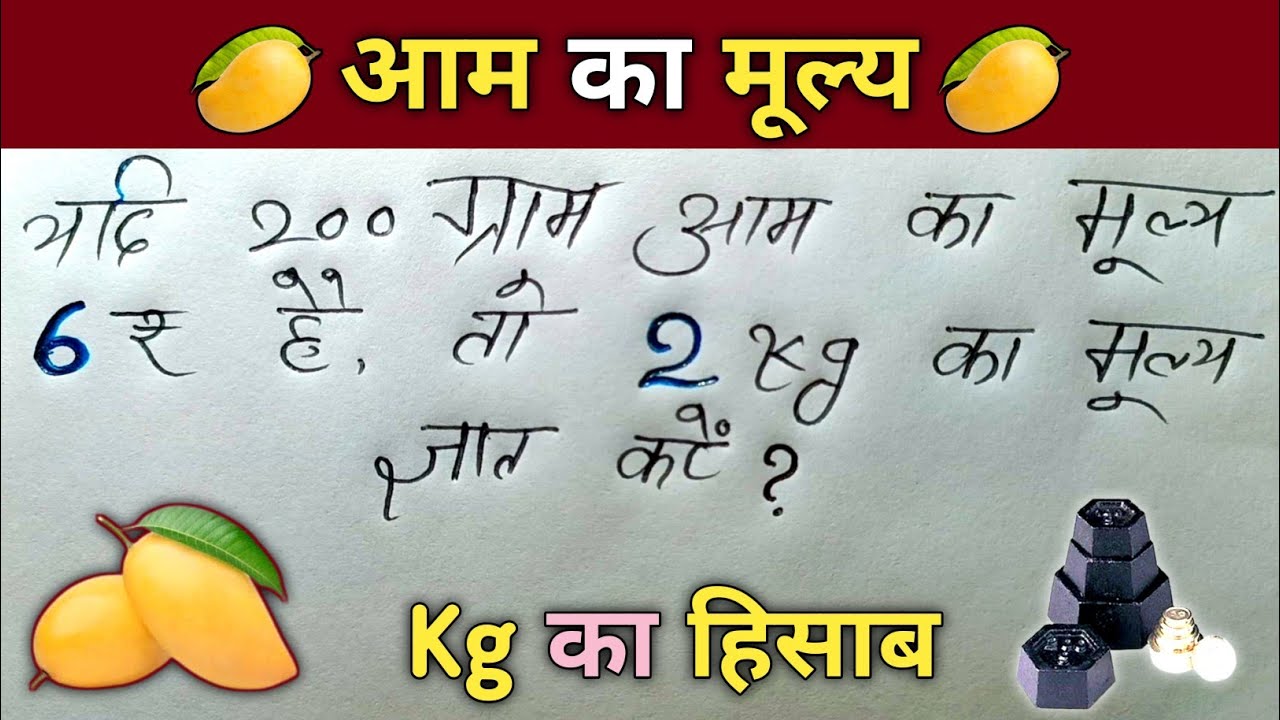 आम का मूल्य
यदि 200 ग्राम आम का मूल्य
6 रु है, तो 2 kg का मूल्य
ज्ञात करें ?
Kg का हिसाब